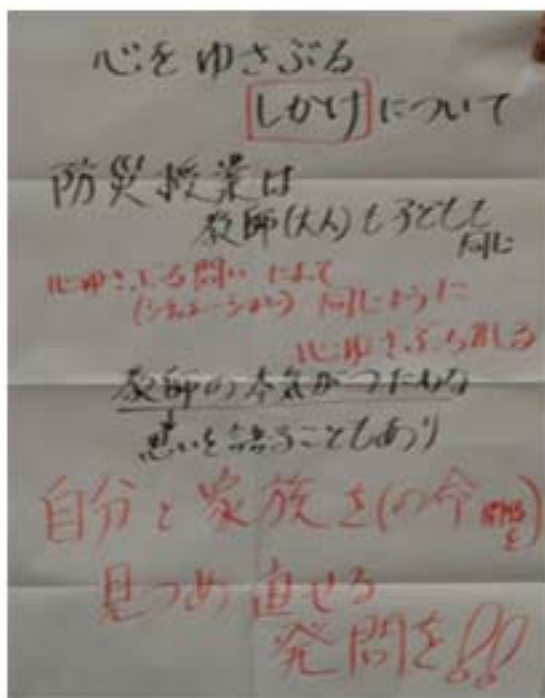 心をゆさぶる
しかけについて
防災授業は
教師(大人)も子どもも
同じ
心ゆさぶる問いによって
(シチュエーション) 同じように
心ゆさぶられる
教師の本気がつたわる
思いを語ることもあり
自分と家族を(の今
を)
見つめ直せる
発問を!!